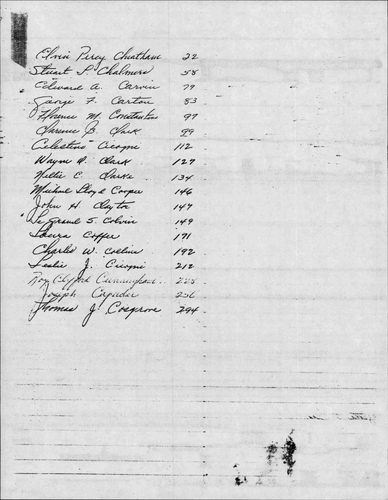 Elvin Percy Cheatham 22
Stuart S. Chalmers 58
Edward A. Carvin 79
George F. Carton 83
Florence M. Constantine 97
Clarence B. Clark 99
Celestine Crespne 112
Wayne A. Clark 127
Nettie C. Clarke 134
Michael Lloyd Cooper 146
John H. Clayton 147
Le Grand S. Colvin 149
Laura Coffee 171
Charlie W. Collins 192
Leslie J. 212
Roy Clifford Cunningham 228
Joseph 256
Thomas J. Cosgrove 294